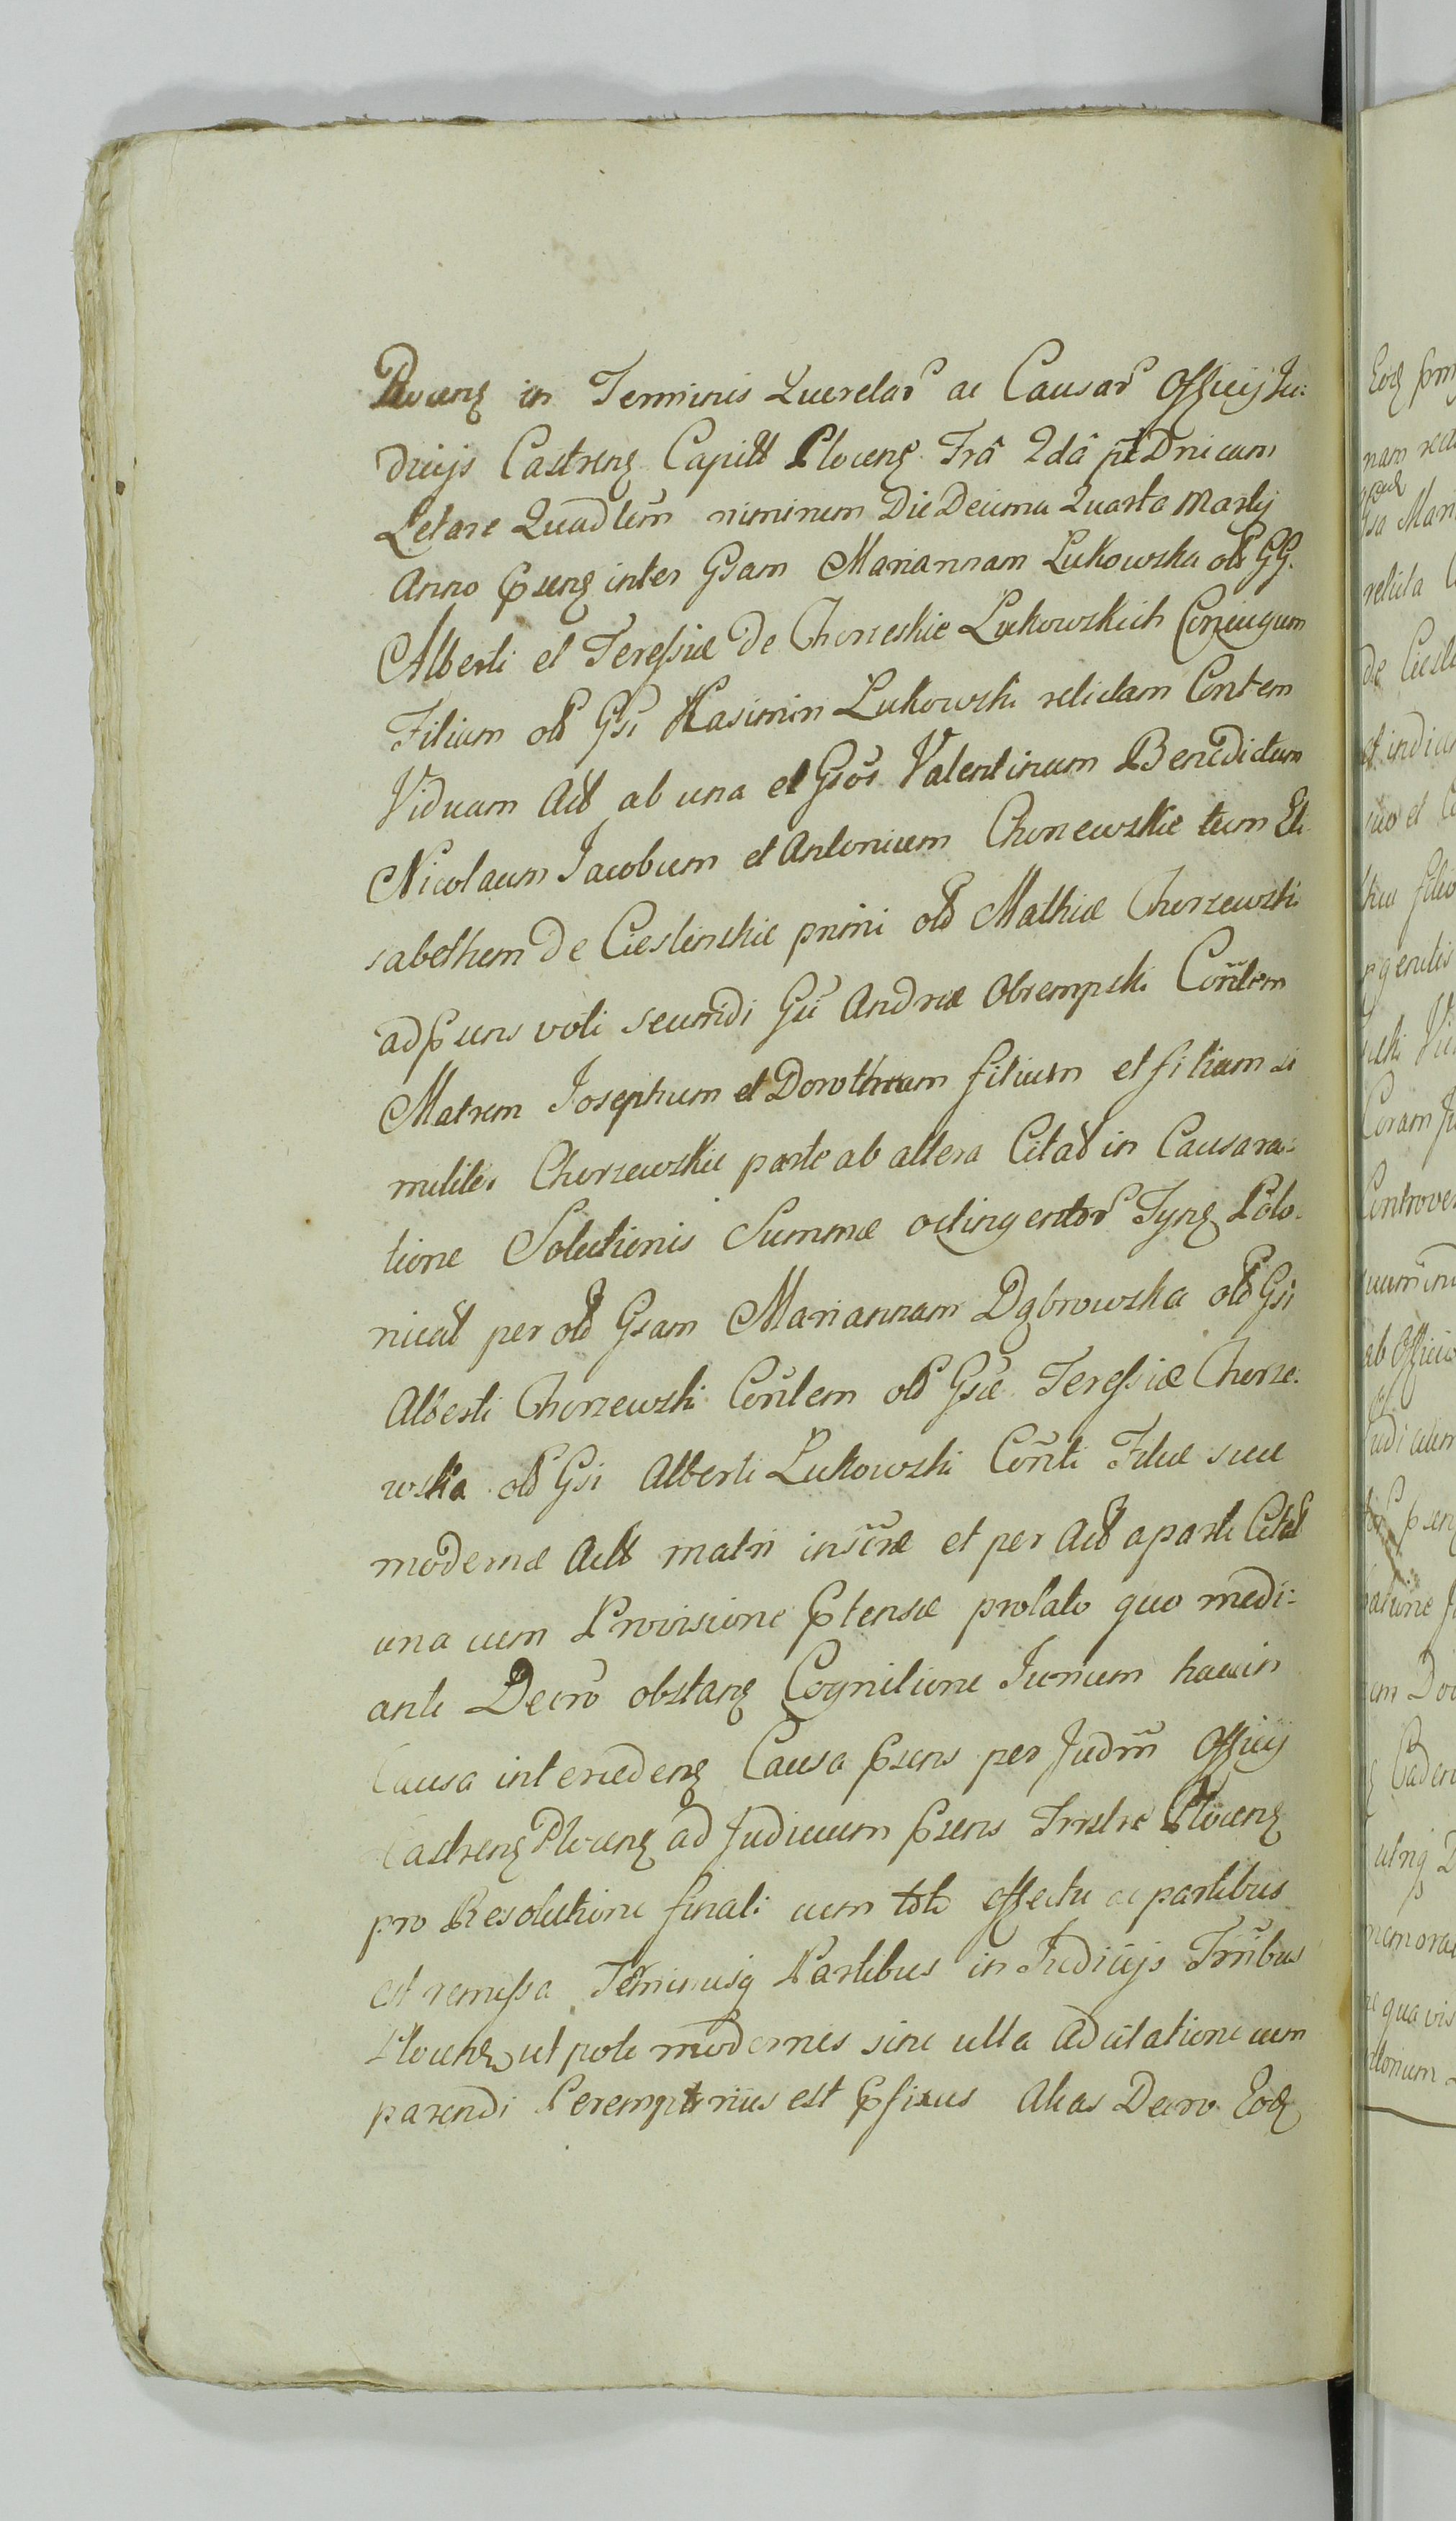 Plocenꝫ in Terminis Querelar ac Causar Officij Ju:
dicijs Castrenꝫ Capitt Plocenꝫ Frâ 2dâ pt Dnicam
Letare Quadlem nimirum Die Decima Quarta Martij
Anno ꝑsenꝫ inter Gsam Mariannam Lukowska olt GG.
Alberti et Teressiæ de Chorzeskie Lukowskich Conjugum
Filium olt Gsi Kasimiri Lukowski relictam Contem
Viduam Act ab una et Gsos Valentinum Benedictum
Nicolaum Jacobum et Antonium Chorzewskie tum Eli
sabetham De Cieslinskie primi olt Mathiæ Chorzewski
ad ꝑsens voti secundi Gsi Andreæ Obrempski Contem
Matrem Josephum et Dorotheam filium et filiam si
militer Chorzewskie parte ab altera Citat in Causa ra:
tione Solutionis Summæ octingentor Tynꝫ Polo.
nicat per olt Gsam Mariannam Dąbrowska olt Gsi
Alberti Chorzewski Contem olt Gsæ Teressiæ Chorze.
wska olt Gsi Alberti Lukowski Conti Filiæ suæ
modernæ Act matri inscræ et per Act a parte Citat
una cum Provisione ꝑtensæ prolato quo medi:
ante Decro obstanꝫ Cognitione Jurium hac in
Causa intercedenꝫ Causa ꝑsens per Judm Officij
Castrenꝫ Plocenꝫ ad Judicium ꝑsens Trrstre Plocenꝫ
pro Resolutione finali cum toto effectu ac partibus
est remissa Terminusqꝫ Partibus in Judicijs Trribus
Plocenꝫ ut pote modernis sine ulla adcitatione cum
parendi Peremptorius est ꝑfixus Alias Decro Eodꝫ